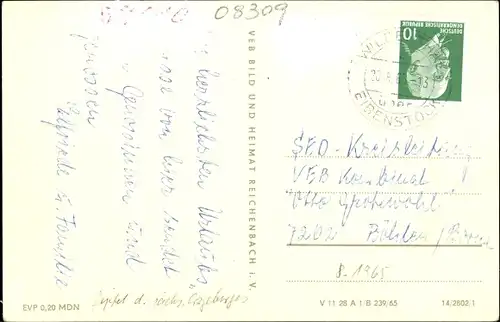 08309
Die herzlichsten Urlaubs
von hier sendet
Genossinnen und
Genossen
Elfriede u. Familie
VEB BILD UND HEIMAT REICHENBACH i. V.
DEUTSCHE
DEMOKRATISCHE REPUBLIK
10
EIBENSTOCK
SED - Kreisleitung
VEB Kombinat
"Otto Grotewohl"
7202 Böhlen
8. 1965
EVP 0,20 MDN
Gipfel d. sächs. Erzgebirges
V 11 28 A 1 B 239/65
14/2802 1